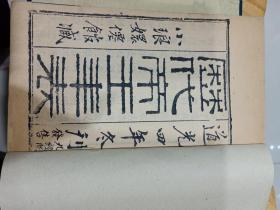 小琅嬛僊館藏
歷代帝王年表
道光四年冬刊
發售